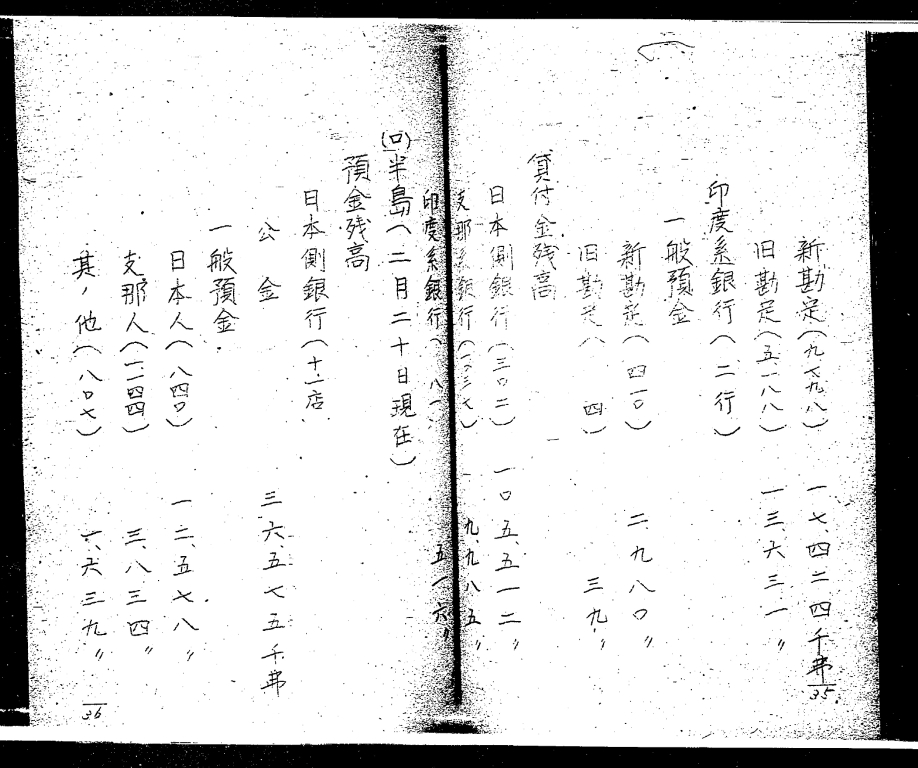 新勘定(九、九八) 一七、四二四千弗
旧勘定(五一八八) 一三、六三一〃
印度系銀行(二行)
一般預金
新勘定(四一〇) 二、九八〇〃
旧勘定(四) 三九〃
貸付金残高
日本側銀行(三〇二) 一〇五、五一二〃
支那系銀行 九、九八五〃
印度系銀行(八一) 五一六〃
35
(ロ)半島(二月二十日現在)
預金残高
日本側銀行(十一店)
公金 三六、五七五千弗
一般預金
日本人(八四〇) 一二、五七八〃
支那人(一二四四) 三、八三四〃
其ノ他(八〇七) 一、六三九〃
36